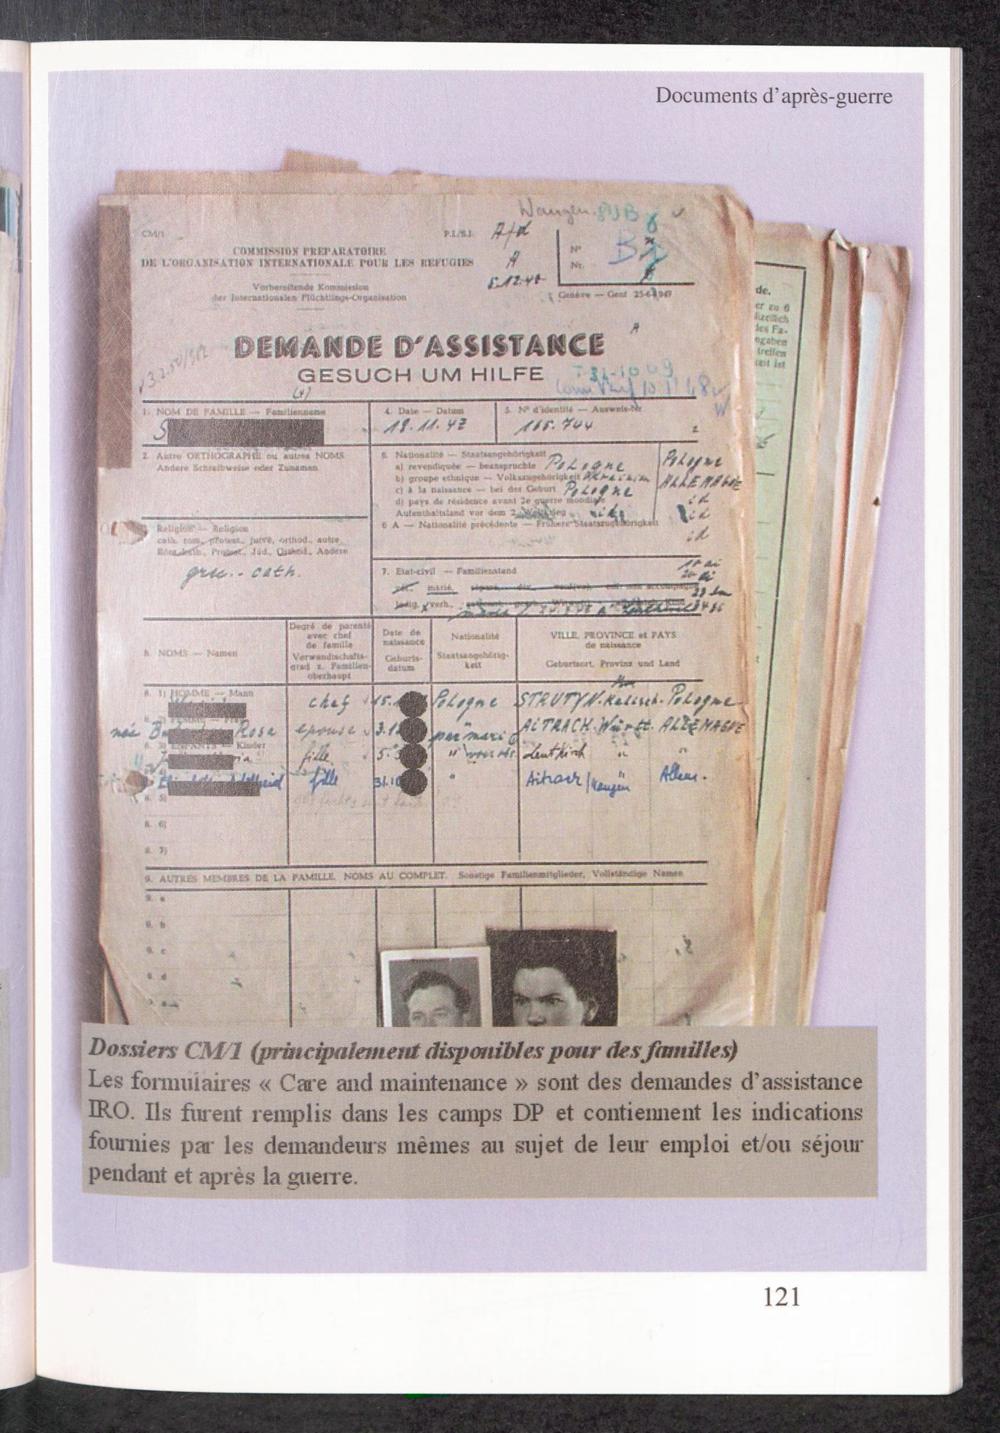 Documents d'après-guerre
Wangen
CM/1
P.I./S.I.
A
COMMISSION PREPARATOIRE
DE L'ORGANISATION INTERNATIONALE POUR LES REFUGIES
Vorbereitende Kommission
der Internationalen Flüchtlings-Organisation
N°
Nr.
Genève — Genf
DEMANDE D'ASSISTANCE
GESUCH UM HILFE
1. NOM DE FAMILLE — Familienname
4. Date — Datum
5. N° d'identité — Ausweis-Nr
S
19.11.47
165.744
2. Autre ORTHOGRAPHE ou autres NOMS
Andere Schreibweise oder Zunamen
6. Nationalité — Staatsangehörigkeit
a) revendiquée — beanspruchte Pologne
Pologne
b) groupe ethnique — Volkszugehörigkeit
ALLEMAGNE
c) à la naissance — bei der Geburt Pologne
id
d) pays de résidence avant 2e guerre mondiale
Aufenthaltsland vor dem 2.
id
6 A — Nationalité précédente — Frühere Staatszugehörigkeit
id
Religion — Religion
cath. rom., protest., juive, orthod., autre
Röm.-kath., Protest., Jüd., Orthod., Andere
7. Etat-civil — Familienstand
marié
verh.
8. NOMS — Namen
Degré de parenté
avec chef
de famille
Verwandschafts-
grad z. Familien-
oberhaupt
Date de
naissance
Geburts-
datum
Nationalité
Staatsangehörig-
keit
VILLE, PROVINCE et PAYS
de naissance
Geburtsort, Provinz und Land
8. 1) HOMME — Mann
chef 15. Pologne STRUTYN. Kalisch. Pologne
née B Rosa epouse 3.1 par mari AITRACH. Württ. ALLEMAGNE
8. 3) ENFANTS — Kinder
fille 5. " Leutkirch " "
fille 31.10 " Aitrach / Wangen " Allem.
8. 5)
8. 6)
8. 7)
9. AUTRES MEMBRES DE LA FAMILLE, NOMS AU COMPLET. Sonstige Familienmitglieder, Vollständige Namen
9. a
9. b
9. c
9. d
Dossiers CM/1 (principalement disponibles pour des familles)
Les formulaires « Care and maintenance » sont des demandes d'assistance
IRO. Ils furent remplis dans les camps DP et contiennent les indications
fournies par les demandeurs mêmes au sujet de leur emploi et/ou séjour
pendant et après la guerre.
121